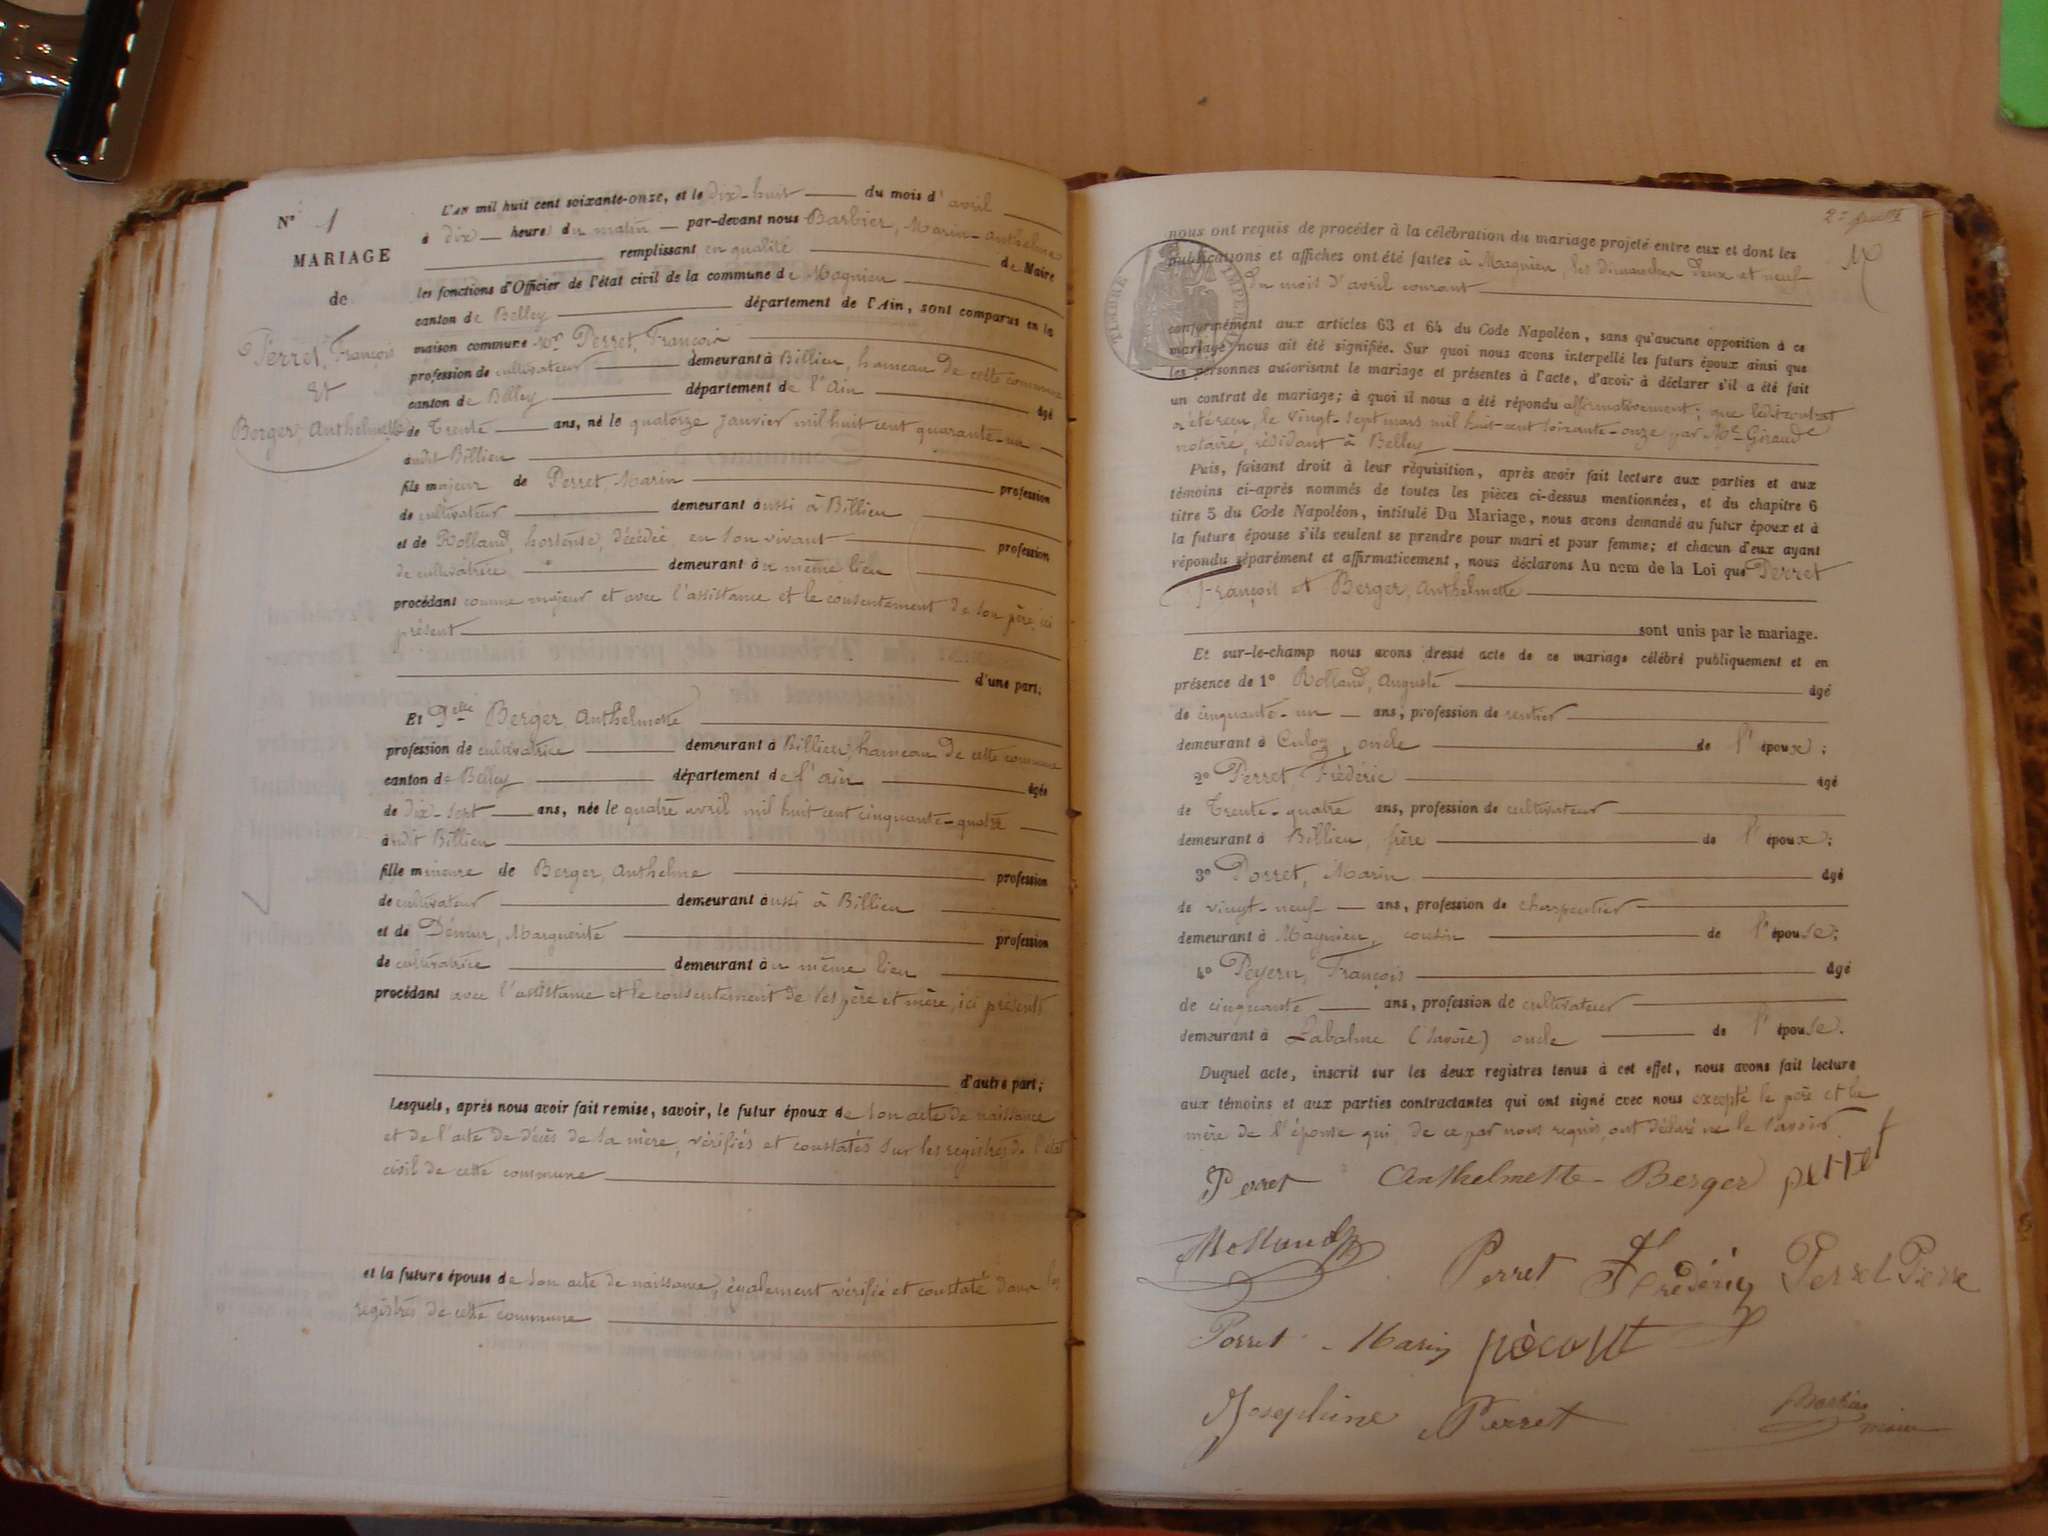 N° 1
MARIAGE
de
Perret, François
et
Berger, Anthelmette
L'AN mil huit cent soixante-onze, et le dix-huit du mois d'avril
à dix heures du matin par-devant nous Barbier, Marin-Anthelme
remplissant en qualité de Maire
les fonctions d'Officier de l'état civil de la commune de Magnieu
canton de Belley département de l'Ain, sont comparus en la
maison commune Mr Perret, François
profession de cultivateur demeurant à Billieu, hameau de cette commune
canton de Belley département de l'Ain âgé
de trente ans, né le quatorze janvier mil huit cent quarante-un
audit Billieu
fils majeur de Perret, Marin profession
de cultivateur demeurant aussi à Billieu
et de Rolland, hortense, décédée, en son vivant profession
de cultivatrice demeurant au même lieu
procédant comme majeur et avec l'assistance et le consentement de son père, ici
présent
d'une part;
Et Delle Berger, Anthelmette
profession de cultivatrice demeurant à Billieu, hameau de cette commune
canton de Belley département de l'ain âgée
de dix-sept ans, née le quatre avril mil huit cent cinquante-quatre
audit Billieu
fille mineure de Berger, Anthelme profession
de cultivateur demeurant aussi à Billieu
et de Démur, Marguerite profession
de cultivatrice demeurant au même lieu
procédant avec l'assistance et le consentement de ses père et mère, ici présents
d'autre part;
Lesquels, après nous avoir fait remise, savoir, le futur époux de son acte de naissance
et de l'acte de décès de sa mère, vérifiés et constatés sur les registres de l'état
civil de cette commune
et la future épouse de son acte de naissance, également vérifié et constaté dans les
registres de cette commune
2e feuille
TIMBRE IMPERIAL
nous ont requis de procéder à la célébration du mariage projeté entre eux et dont les
publications et affiches ont été faites à Magnieu, les dimanches deux et neuf
du mois d'avril courant
conformément aux articles 63 et 64 du Code Napoléon, sans qu'aucune opposition à ce
mariage nous ait été signifiée. Sur quoi nous avons interpellé les futurs époux ainsi que
les personnes autorisant le mariage et présentes à l'acte, d'avoir à déclarer s'il a été fait
un contrat de mariage; à quoi il nous a été répondu affirmativement; que ledit contrat
a été reçu, le vingt-sept mars mil huit-cent soixante-onze par Me Giraud
notaire, résidant à Belley
Puis, faisant droit à leur réquisition, après avoir fait lecture aux parties et aux
témoins ci-après nommés de toutes les pièces ci-dessus mentionnées, et du chapitre 6
titre 5 du Code Napoléon, intitulé Du Mariage, nous avons demandé au futur époux et à
la future épouse s'ils veulent se prendre pour mari et pour femme; et chacun d'eux ayant
répondu séparément et affirmativement, nous déclarons Au nom de la Loi que Perret
François et Berger, Anthelmette
sont unis par le mariage.
Et sur-le-champ nous avons dressé acte de ce mariage célébré publiquement et en
présence de 1° Rolland, Auguste âgé
de cinquante-un ans, profession de rentier
demeurant à Culoz, oncle de l'époux;
2° Perret, Frédéric âgé
de trente-quatre ans, profession de cultivateur
demeurant à Billieu, frère de l'époux;
3° Porret, Marin âgé
de vingt-neuf ans, profession de charpentier
demeurant à Magnieu, cousin de l'épouse;
4° François âgé
de cinquante ans, profession de cultivateur
demeurant à Labalme (Savoie) oncle de l'épouse.
Duquel acte, inscrit sur les deux registres tenus à cet effet, nous avons fait lecture
aux témoins et aux parties contractantes qui ont signé avec nous excepté le père et la
mère de l'épouse qui, de ce par nous requis, ont déclaré ne le savoir
Perret Anthelmette-Berger perret
Perret Frédéric Perret Pierre
Porret-Marin
Josephine Perret Barbier
maire